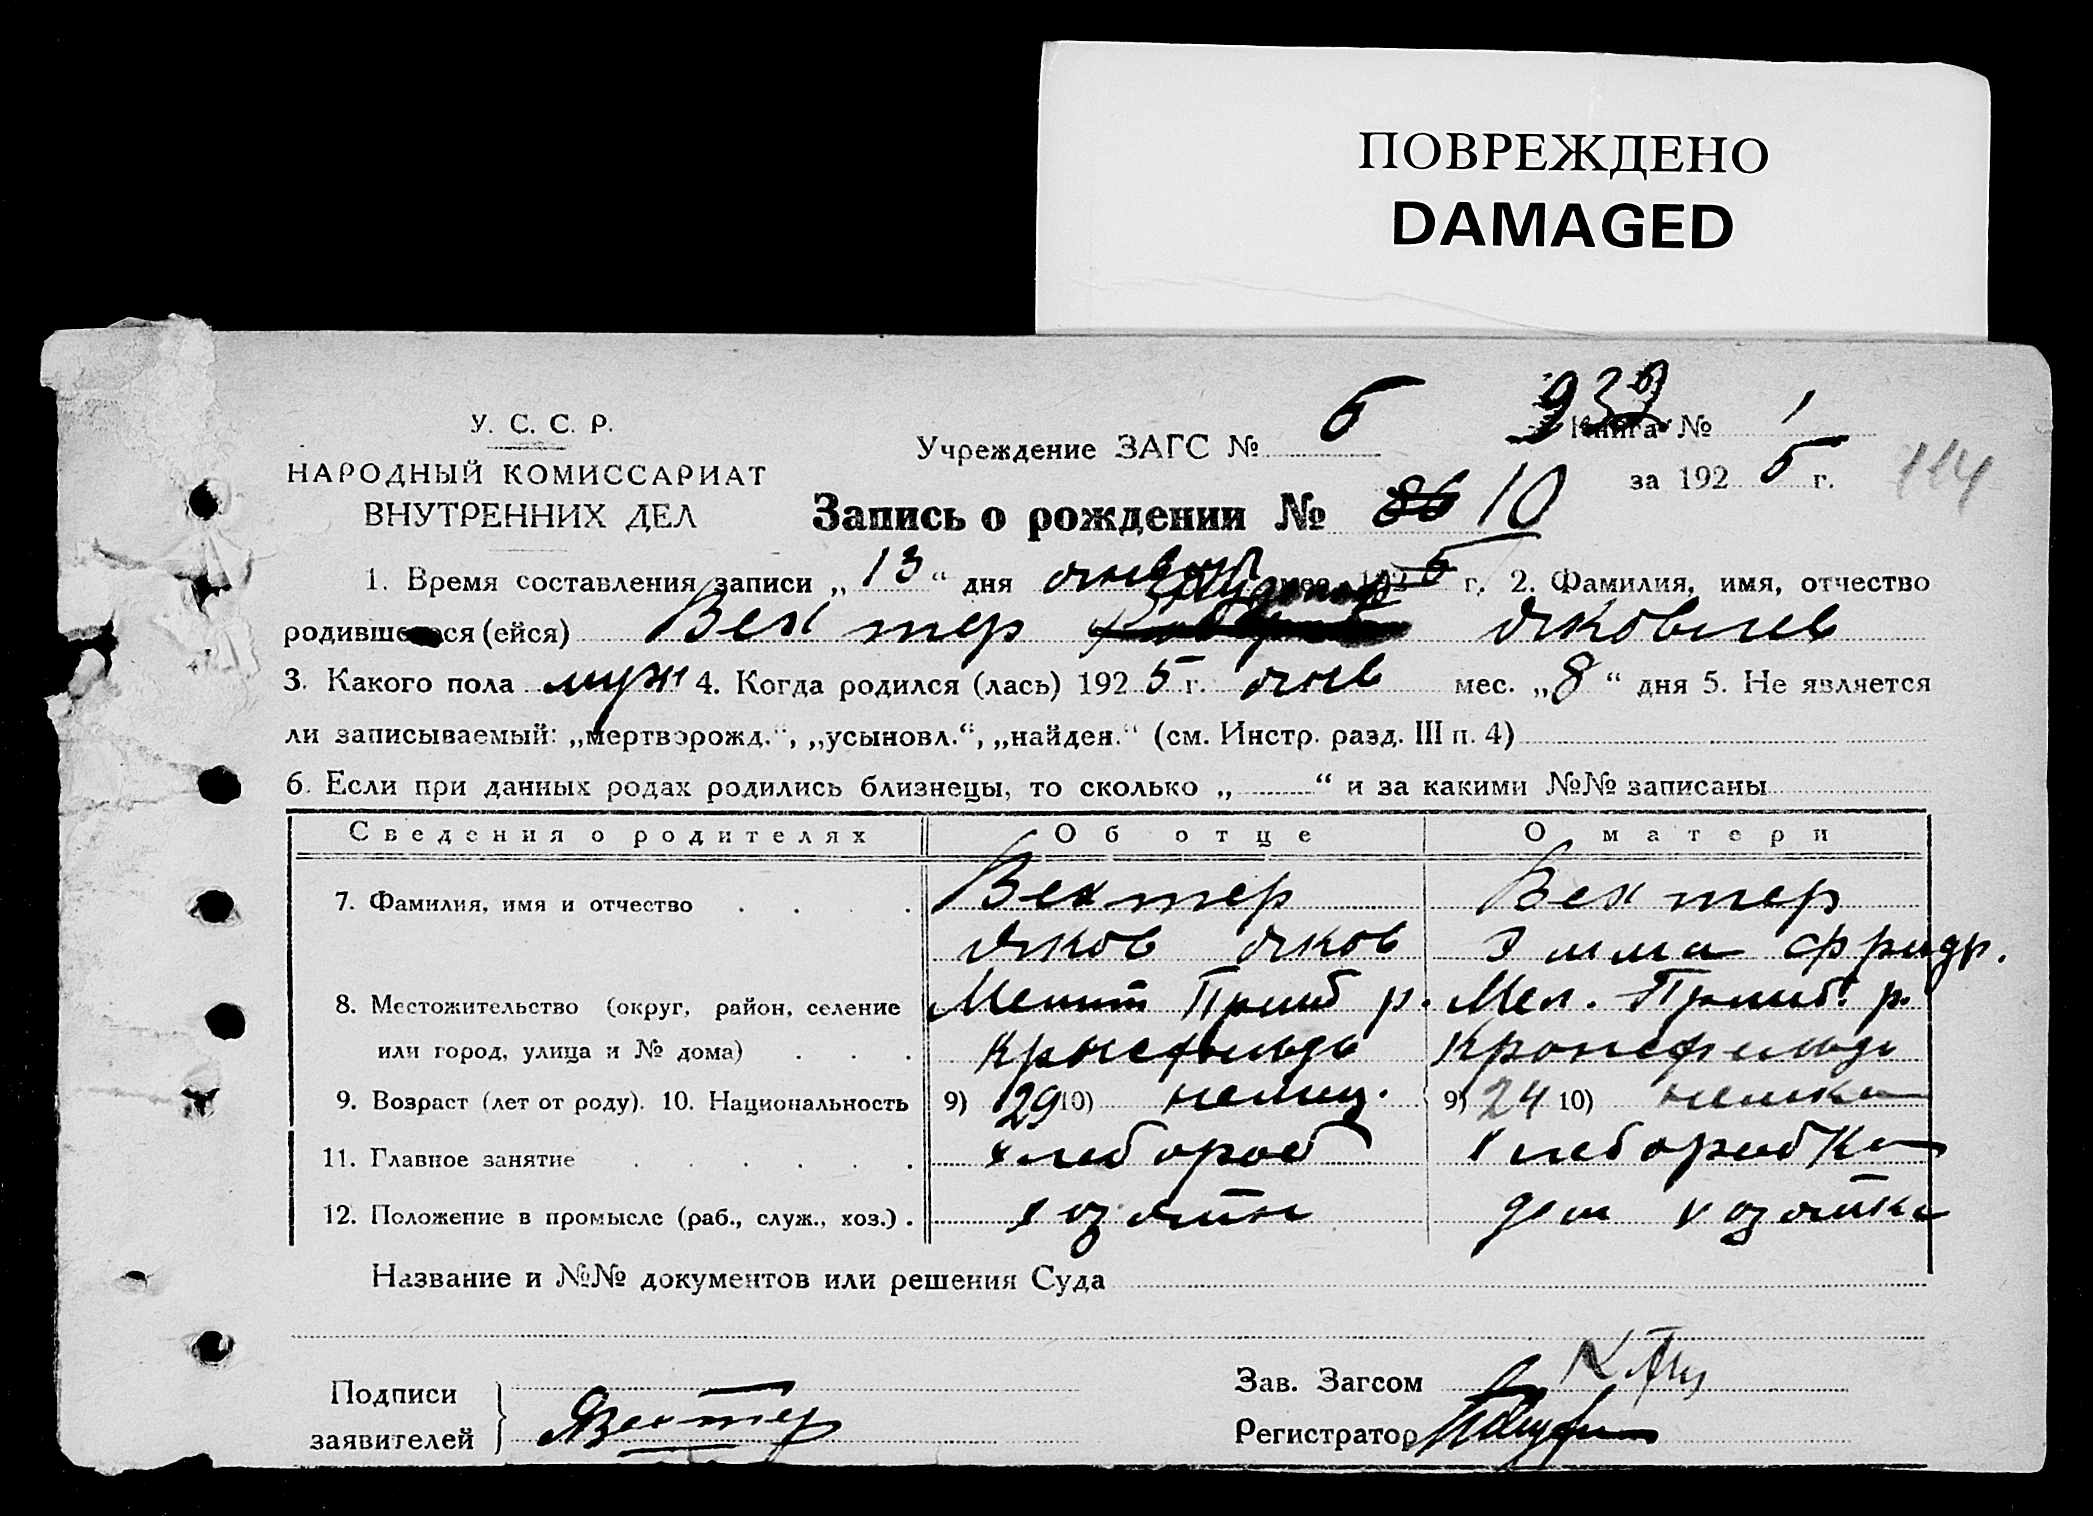 ПОВРЕЖДЕНО
DAMAGED
У. С. С. Р.
НАРОДНЫЙ КОМИССАРИАТ
ВНУТРЕННИХ ДЕЛ
Учреждение ЗАГС № 5
939
Книга № 1
за 192 5 г.
114
Запись о рождении № 86 10
1. Время составления записи „ 13 “ дня января мес. 192 5 г. 2. Фамилия, имя, отчество
родившегося (ейся) Вехтер Яковлев
3. Какого пола муж 4. Когда родился (лась) 192 5 г. янв мес. „ 8 “ дня 5. Не является
ли записываемый: „мертворожд.“, „усыновл.“, „найден.“ (см. Инстр. разд. III п. 4)
6. Если при данных родах родились близнецы, то сколько „ “ и за какими №№ записаны
Сведения о родителях Об отце О матери
7. Фамилия, имя и отчество Вехтер Вехтер
Яков Яков Эмма Фридр.
8. Местожительство (округ, район, селение Мелит Пришиб р. Мел. Пришиб. р.
или город, улица и № дома) Кронсфельд Кронсфельд
9. Возраст (лет от роду). 10. Национальность 9) 29 10) немец. 9) 24 10) немка
11. Главное занятие хлебороб хлеборобка
12. Положение в промысле (раб., служ., хоз.) хозяин дом хозяйка
Название и №№ документов или решения Суда
Подписи
заявителей Я Вехтер
Зав. Загсом
Регистратор